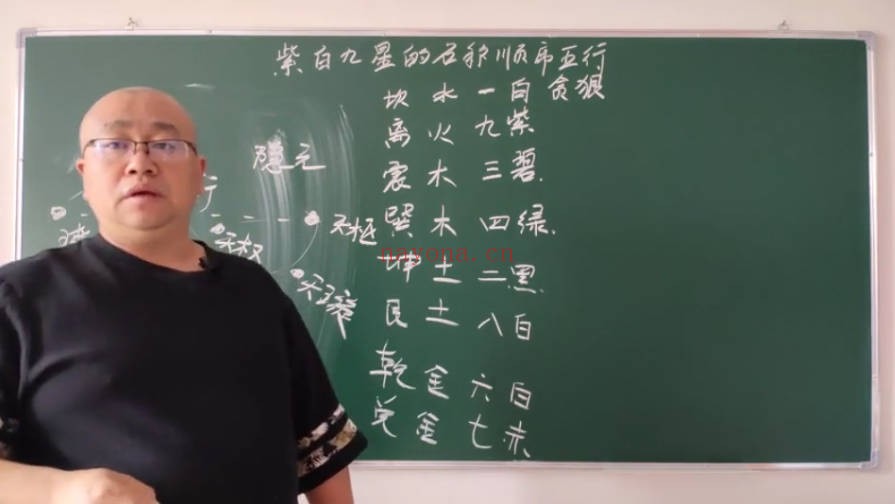 紫白九星的名称顺序五行
坎 水 一白 贪狼
离 火 九紫
震 木 三碧.
巽 木 四绿.
坤 土 二黑.
艮 土 八白
乾 金 六白
兑 金 七赤
隐元
行
天枢
天权
天璇
nayona.cn